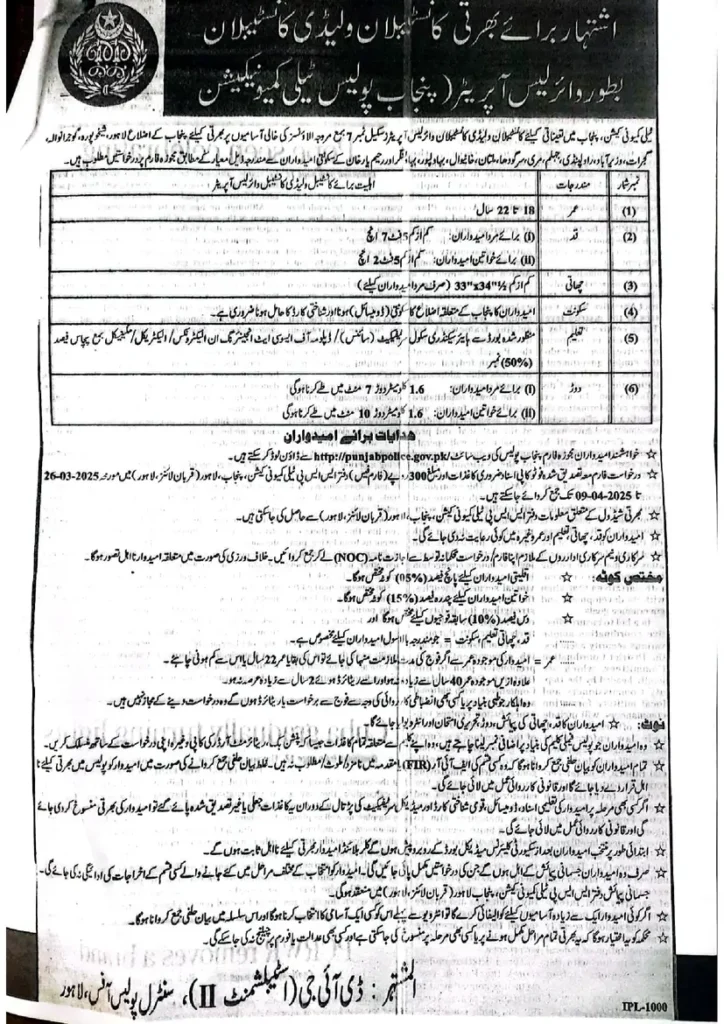 اشتہار برائے بھرتی کانسٹیبلان و لیڈی کانسٹیبلان
بطور وائرلیس آپریٹر (پنجاب پولیس ٹیلی کمیونیکیشن
ٹیلی کمیونی کیشن، پنجاب میں تعیناتی کیلئے کانسٹیبلان و لیڈی کانسٹیبلان وائرلیس آپریٹر (سکیل نمبر 7 بمع مروجہ الاؤنسز کی خالی آسامیوں پر بھرتی کیلئے پنجاب کے اضلاع لاہور، شیخوپورہ، گوجرانوالہ،
گجرات، وزیر آباد، راولپنڈی، جہلم، مری، سرگودھا، ملتان، خانیوال، بہاولپور، بہاولنگر اور رحیم یار خان کے سکونتی امیدواران سے مندرجہ ذیل معیار کے مطابق مجوزہ فارم پر درخواستیں مطلوب ہیں۔
نمبر شمار مندرجات اہلیت برائے کانسٹیبل و لیڈی کانسٹیبل وائرلیس آپریٹر
(1) عمر 18 تا 22 سال
(2) قد (i) برائے مرد امیدواران: کم از کم 5 فٹ 7 انچ
(ii) برائے خواتین امیدواران: کم از کم 5 فٹ 2 انچ
(3) چھاتی کم از کم 33"x34½" (صرف مرد امیدواران کیلئے)
(4) سکونت امیدواران کا پنجاب کے متعلقہ اضلاع کا سکونتی (ڈومیسائل) ہونا اور شناختی کارڈ کا حامل ہونا ضروری ہے۔
(5) تعلیم منظور شدہ بورڈ سے ہائیر سیکنڈری سکول سرٹیفکیٹ (سائنس)/ ڈپلومہ آف ایسوسی ایٹ انجینئرنگ ان الیکٹرونکس/ الیکٹریکل/ مکینیکل بمع پچاس فیصد
(50%) نمبر
(6) دوڑ (i) برائے مرد امیدواران: 1.6 کلومیٹر دوڑ 7 منٹ میں طے کرنا ہوگی
(ii) برائے خواتین امیدواران: 1.6 کلومیٹر دوڑ 10 منٹ میں طے کرنا ہوگی
ہدایات برائے امیدواران
☆ خواہشمند امیدواران مجوزہ فارم پنجاب پولیس کی ویب سائٹ http://punjabpolice.gov.pk/ سے ڈاؤن لوڈ کر سکتے ہیں۔
☆ درخواست فارم معہ تصدیق شدہ فوٹو کاپی اسناد ضروری کاغذات اور مبلغ 300 روپے (فارم فیس) دفتر ایس ایس پی ٹیلی کمیونی کیشن، پنجاب، لاہور (قربان لائنز، لاہور) میں مورخہ 26-03-2025
تا 09-04-2025 تک جمع کروائے جا سکتے ہیں۔
☆ بھرتی شیڈول کے متعلق معلومات دفتر ایس ایس پی ٹیلی کمیونی کیشن، پنجاب، لاہور (قربان لائنز، لاہور) سے حاصل کی جا سکتی ہیں۔
☆ امیدواران کو قد، چھاتی، تعلیم اور عمر وغیرہ میں کوئی رعایت نہ دی جائے گی۔
☆ سرکاری و نیم سرکاری اداروں کے ملازم اپنا فارم/ درخواست محکمانہ توسط سے اجازت نامہ (NOC) لے کر جمع کروائیں۔ خلاف ورزی کی صورت میں متعلقہ امیدوار نااہل تصور ہوگا۔
مختص کوٹہ: ☆ اقلیتی امیدواران کیلئے پانچ فیصد (05%) کوٹہ مختص ہوگا۔
☆ خواتین امیدواران کیلئے پندرہ فیصد (15%) کوٹہ مختص ہوگا۔
☆ دس فیصد (10%) سابقہ فوجیوں کیلئے مختص ہوگا اور
قد، چھاتی، تعلیم، سکونت = جو مندرجہ بالا سول امیدواران کیلئے مخصوص ہے۔
عمر = امیدوار کی موجودہ عمر سے اگر فوج کی مدت ملازمت منہا کی جائے تو اس کی بقایا عمر 22 سال یا اس سے کم ہونی چاہئے۔
علاوہ ازیں موجودہ عمر 40 سال سے زیادہ نہ ہو اور اسے ریٹائرڈ ہوئے 2 سال سے زیادہ عرصہ نہ ہو۔
وہ اہلکار جو طبی بنیاد پر یا کسی بھی انضباطی کارروائی کی وجہ سے فوج سے برخواست یا ریٹائرڈ ہوں گے وہ درخواست دینے کے مجاز نہیں ہیں۔
نوٹ: ☆ امیدواران کا قد، چھاتی کی پیمائش، دوڑ، تحریری امتحان اور انٹرویو لیا جائے گا۔
☆ وہ امیدواران جو پولیس فیملی کلیم کی بنیاد پر اضافی نمبر لینا چاہتے ہیں، وہ اپنے کلیم سے متعلقہ تمام کاغذات جیسا کہ پنشن بک، ریٹائرمنٹ آرڈر کی کاپی وغیرہ اپنی درخواست کے ساتھ منسلک کریں۔
☆ تمام امیدواران کو بیان حلفی جمع کروانا ہوگا کہ وہ کسی قسم کی ایف آئی آر (FIR) یا مقدمہ میں نامزد/ ملوث/ مطلوب نہ ہیں۔ غلط بیان حلفی جمع کروانے کی صورت میں امیدوار کو پولیس میں بھرتی کیلئے نا
اہل قرار دے دیا جائے گا اور قانونی کارروائی عمل میں لائی جائے گی۔
☆ اگر کسی بھی مرحلہ پر امیدوار کی تعلیمی اسناد، ڈومیسائل، قومی شناختی کارڈ اور میڈیکل سرٹیفکیٹ کی پڑتال کے دوران یہ کاغذات جعلی یا غیر تصدیق شدہ پائے گئے تو امیدوار کی بھرتی منسوخ کر دی جائے
گی اور قانونی کارروائی عمل میں لائی جائے گی۔
☆ ابتدائی طور پر منتخب امیدواران بعد از سکیورٹی کلیئرنس میڈیکل بورڈ کے روبرو پیش ہوں گے کلر بلائنڈ امیدوار بھرتی کیلئے نااہل ثابت ہوں گے۔
☆ صرف وہ امیدواران جسمانی پیمائش کے اہل ہوں گے جن کی درخواستیں مکمل پائی جائیں گی۔ امیدوار کو انتخاب کے مختلف مراحل میں کئے جانے والے کسی قسم کے اخراجات کی ادائیگی نہ کی جائے گی۔
جسمانی پیمائش دفتر ایس ایس پی ٹیلی کمیونی کیشن، پنجاب لاہور (قربان لائنز، لاہور) میں منعقد ہوگی۔
☆ اگر کوئی امیدوار ایک سے زیادہ آسامیوں کیلئے کوالیفائی کرے گا تو انٹرویو سے پہلے اس کو کسی ایک آسامی کا انتخاب کرنا ہوگا اور اس سلسلہ میں بیان حلفی جمع کروانا ہوگا۔
☆ محکمہ کو یہ اختیار ہوگا کہ یہ بھرتی تمام مراحل مکمل ہونے پر یا کسی بھی مرحلہ پر منسوخ کی جا سکتی ہے اور کسی بھی عدالت یا فورم پر چیلنج نہ کی جا سکے گی۔
المشتہر: ڈی آئی جی (اسٹیبلشمنٹ II)، سنٹرل پولیس آفس، لاہور
IPL-1000